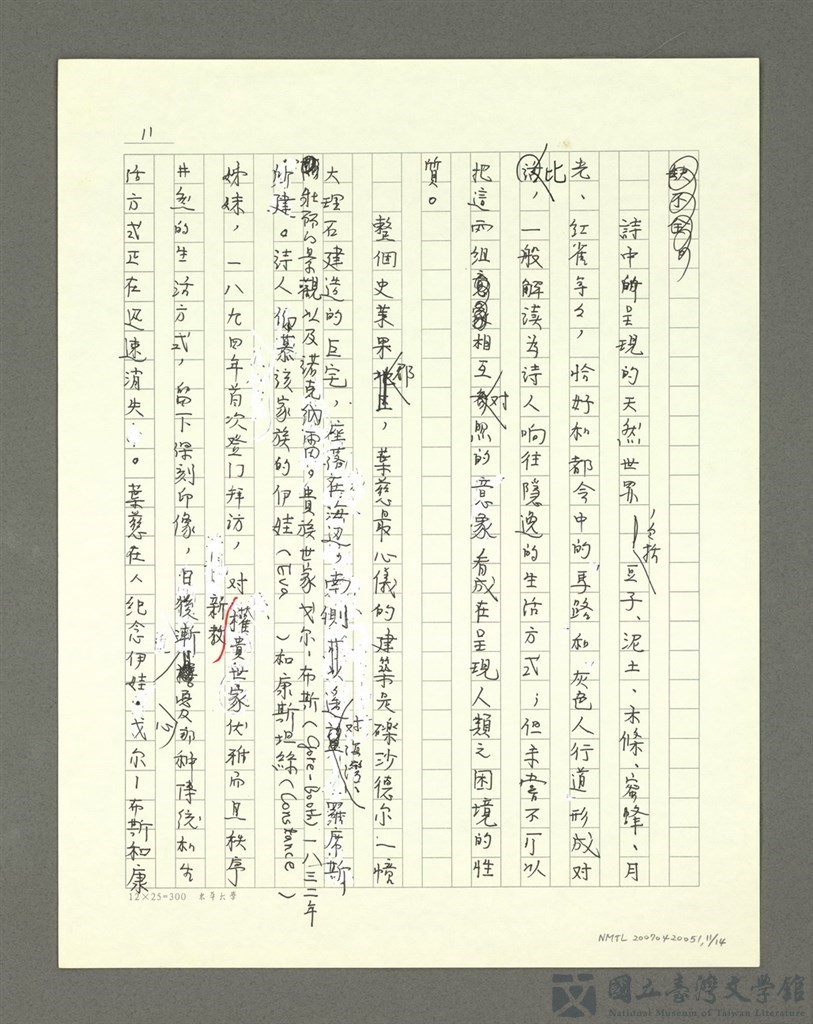 11
缺不全的
詩中所呈現的天然世界，包括豆子、泥土、木條、蜜蜂、月
光、紅雀等々，恰好和都會中的馬路和灰色人行道形成對
比，一般解讀為詩人响往隱逸的生活方式；但未嘗不可以
把這兩組相互对照的意象看成在呈現人類之困境的性
質。
整個史萊果郡，葉慈最心儀的建築是礫沙德尔一憤
大理石建造的巨宅，座落在海辺，南側可以遥對海灣、羅席斯
的壯丽的景觀以及諾克納雷。貴族世家戈尔—布斯（Gore-Booth）一八三二年
所建。詩人仰慕该家族的伊娃（Eva）和康斯坦絲（Constance）
姊妹，一八九四年首次登门拜访，对新教權貴世家优雅而且秩序
井然的生活方式，留下深刻印像，日後漸漸憂心那种傳統和生
活方式正在迅速消失。葉慈在人纪念伊娃。戈尔—布斯和康
12×25=300 東華大學
NMTL 20070420051, 11/14
國立臺灣文學館
National Museum of Taiwan Literature